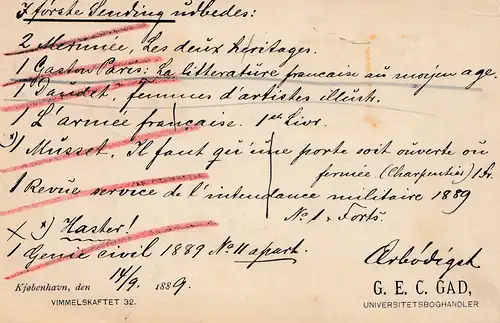 I förste Sending udbedes:
2 Merimée, Les deux héritages.
1 Gaston Paris: La litterature francaise au moyen age.
1 Daudet - femmes d'artistes illustr.
1 L'armée française. 1re Livr.
x) 1 Musset. Il faut qu'une porte soit ouverte ou
fermée. (Charpentier) 1 fr.
1 Revue service de l'intendance militaire 1889
No. 1 + Forts.
x x) Haster!
1 Genie civil 1889 No. 11 apart.
Ærbödigst
Kjøbenhavn, den 14/9. 1889.
G. E. C. GAD,
VIMMELSKAFTET 32.
UNIVERSITETSBOGHANDLER